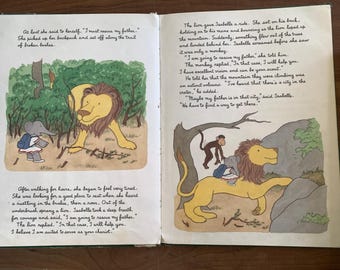 At last she said to herself, "I must rescue my father."
She picked up her backpack and set off along the trail
of broken bushes.
After walking for hours, she began to feel very tired.
She was looking for a good place to rest when she heard
a rustling in the bushes, then a roar. Out of the
underbrush sprang a lion. Isabella took a deep breath
for courage and said, "I am going to rescue my father."
The lion replied, "In that case, I will help you.
I believe I am suited to serve as your chariot."
The lion gave Isabella a ride. She sat on his back,
holding on to his mane and bouncing as the lion leaped up
the mountain. Suddenly, something flew out of the trees
and landed behind her. Isabella screamed before she saw
it was only a monkey.
"I am going to rescue my father," she told him.
The monkey replied, "In that case, I will help you.
I have excellent vision and can be your scout."
He told her that the mountain they were climbing was
an extinct volcano. "I've heard that there's a city in the
crater," he added.
"Maybe my father is in that city," said Isabella.
"We have to find a way to get there."